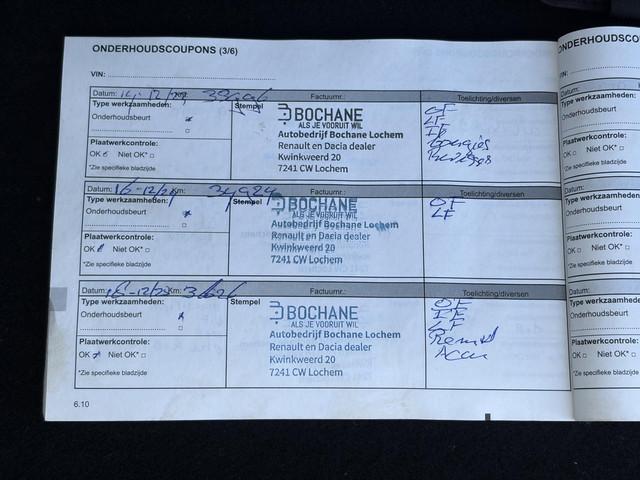 ONDERHOUDSCOUPONS (3/6)
VIN:
Datum: Factuurnr.: Toelichting/diversen
Type werkzaamheden: Stempel BOCHANE OF
Onderhoudsbeurt ALS JE VOORUIT WIL LF
Autobedrijf Bochane Lochem
Plaatwerkcontrole: Renault en Dacia dealer
OK Niet OK* Kwinkweerd 20
*Zie specifieke bladzijde 7241 CW Lochem
Datum: 16-12/ 34924 Factuurnr.: Toelichting/diversen
Type werkzaamheden: Stempel BOCHANE OF
Onderhoudsbeurt ALS JE VOORUIT WIL LF
Autobedrijf Bochane Lochem
Plaatwerkcontrole: Renault en Dacia dealer
OK Niet OK* Kwinkweerd 20
*Zie specifieke bladzijde 7241 CW Lochem
Datum: 16-12/ Km: Factuurnr.: Toelichting/diversen
Type werkzaamheden: Stempel BOCHANE OF
Onderhoudsbeurt ALS JE VOORUIT WIL IF
Autobedrijf Bochane Lochem LF
Plaatwerkcontrole: Renault en Dacia dealer
OK Niet OK* Kwinkweerd 20
*Zie specifieke bladzijde 7241 CW Lochem
6.10
ONDERHOUDSCO
VIN:
Datum:
Type werkzaamheden:
Onderhoudsbeurt
Plaatwerkcontrole:
OK Niet OK*
*Zie specifieke bladzijde
Datum:
Type werkzaamheden:
Onderhoudsbeurt
Plaatwerkcontrole:
OK Niet OK*
*Zie specifieke bladzijde
Datum:
Type werkzaamheden:
Onderhoudsbeurt
Plaatwerkcontrole:
OK Niet OK*
*Zie specifieke bladzijde